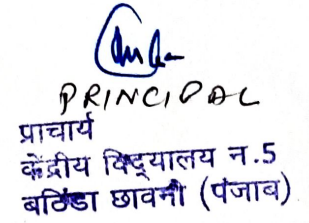 PRINCIPAL
प्राचार्य
केंद्रीय विद्यालय न.5
बठिंडा छावनी (पंजाब)